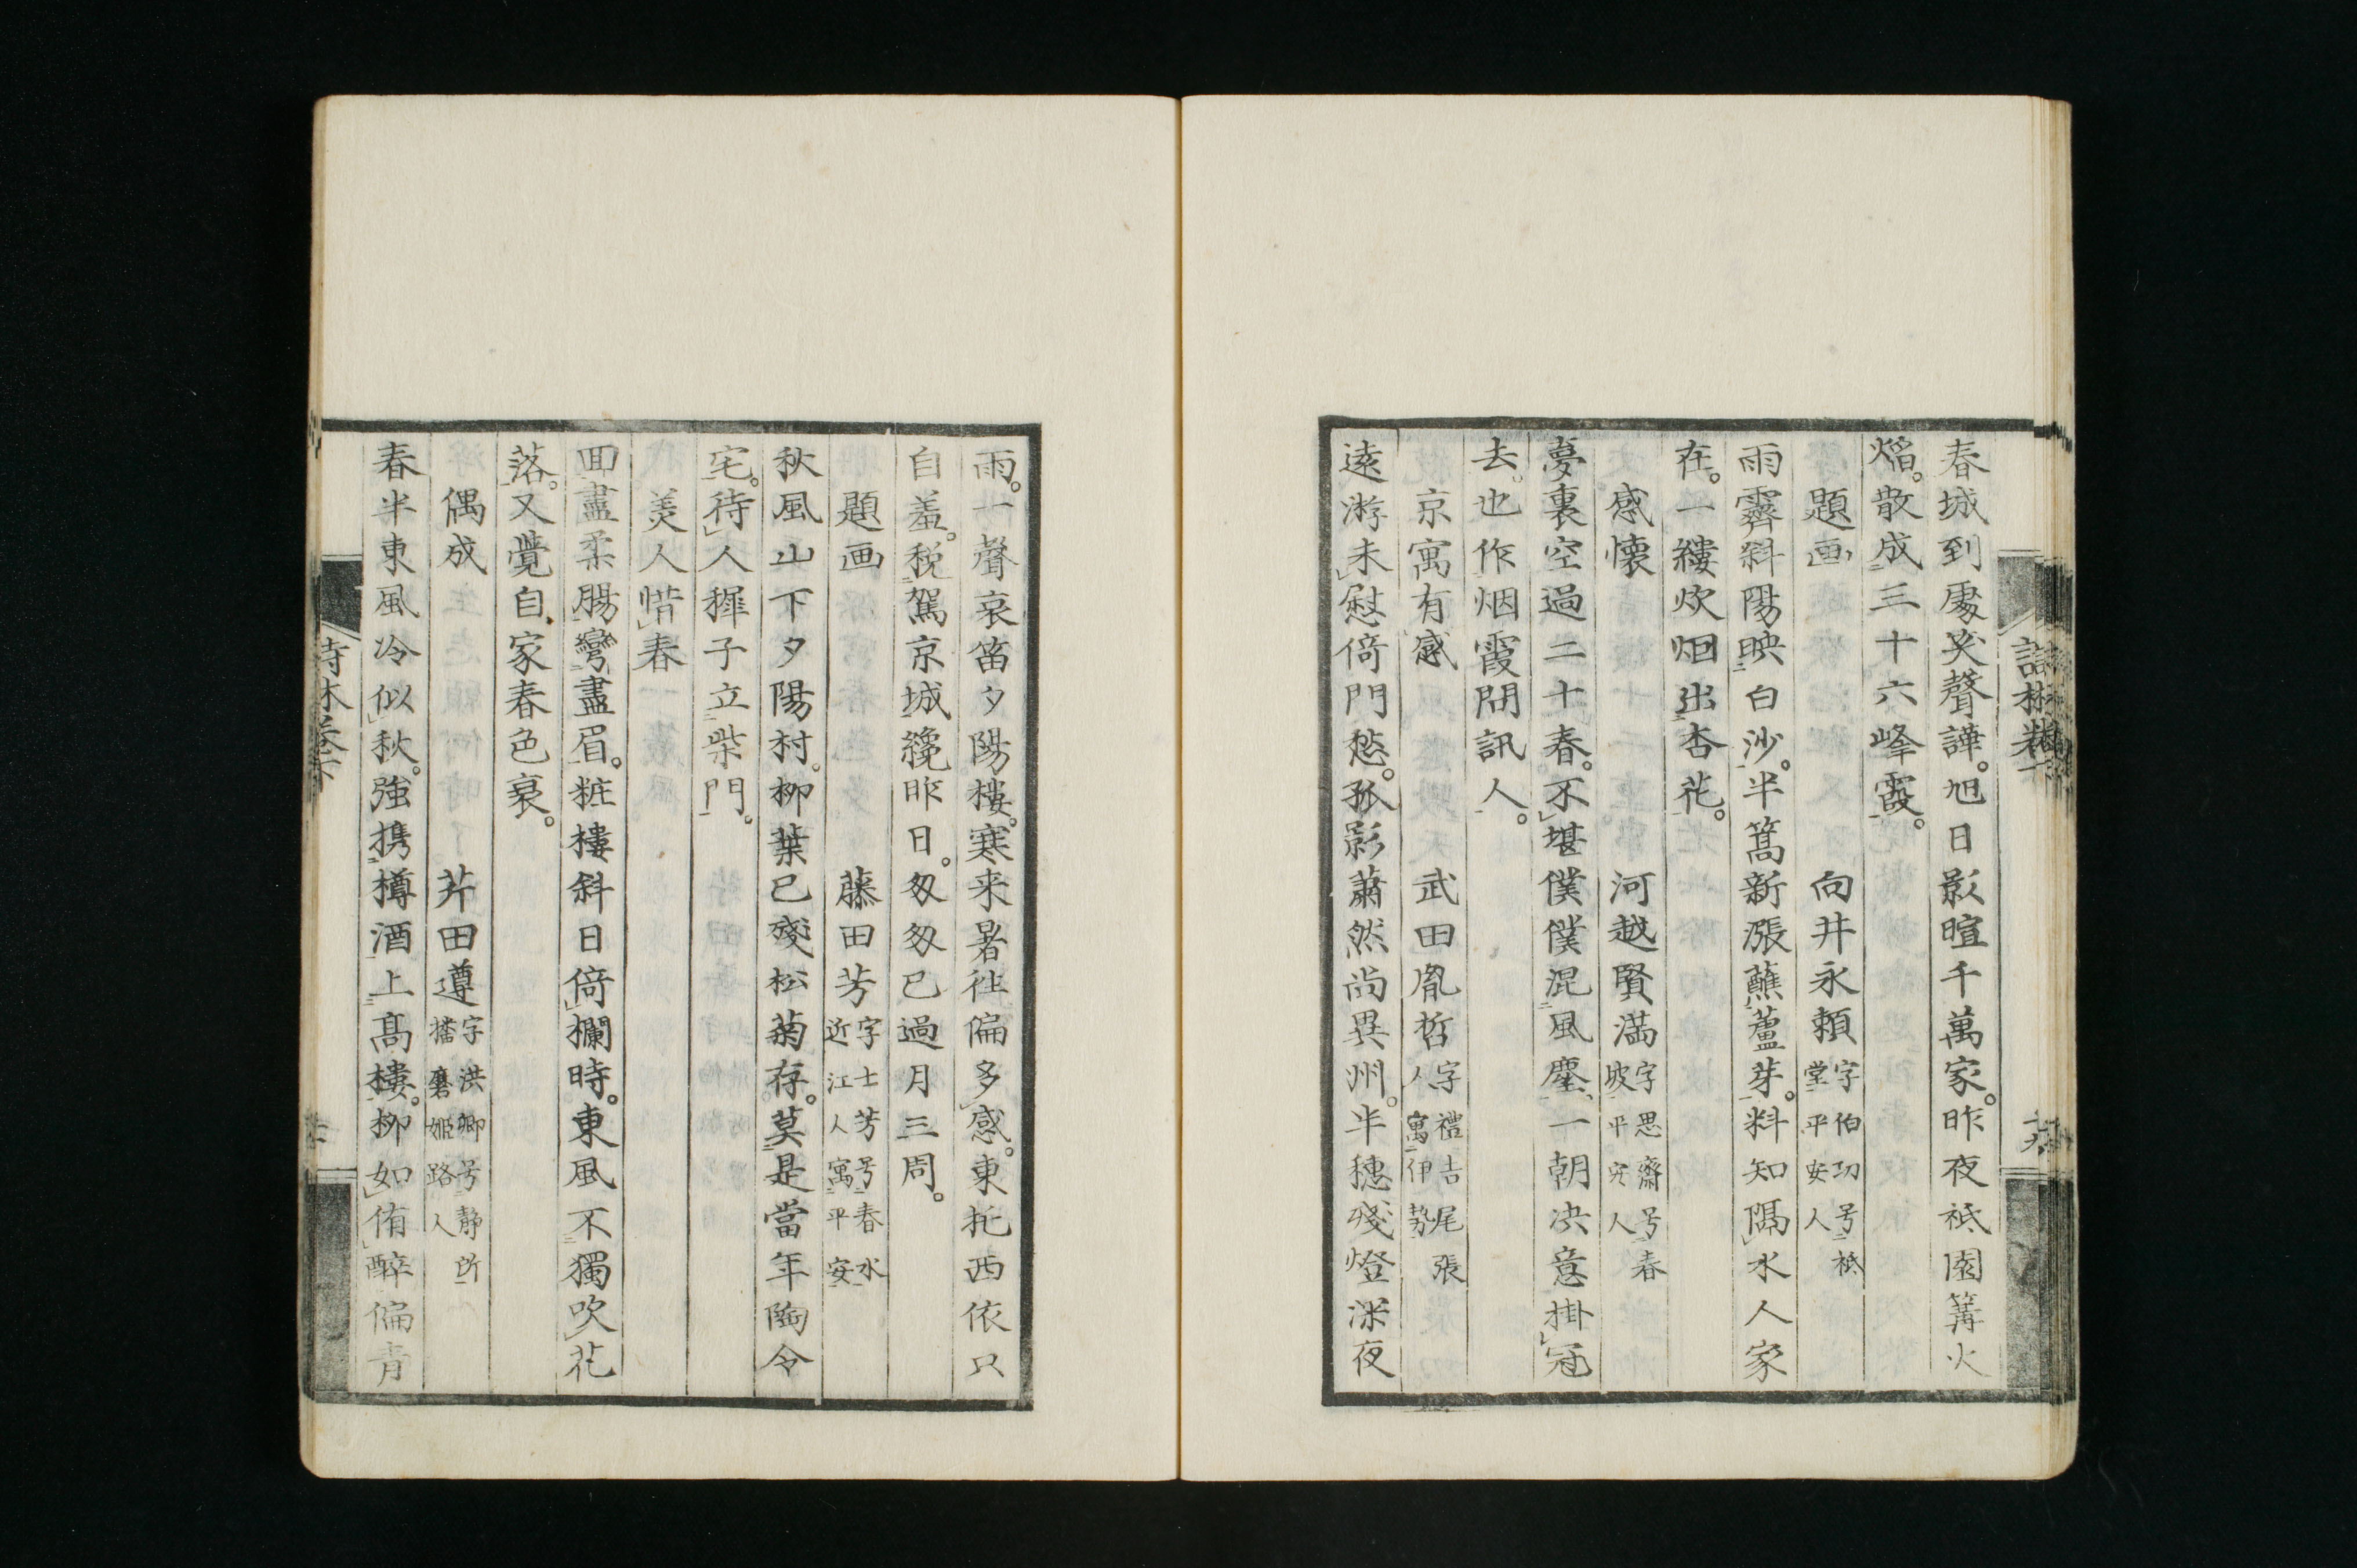 春城到處笑聲譁。旭日影暄千萬家。昨夜祇園篝火
熖。散成三十六峰霞。
題画　向井永頼 字伯功号祗堂平安人
雨霽斜陽映白沙。半篙新漲蘸蘆芽。料知隔水人家
在。一縷炊烟出杏花。
感懐　河越賢満 字思齋号春坡平安人
夢裏空過二十春。不堪僕僕混風塵。一朝决意掛冠
去。也作烟霞問訊人。
京寓有感　武田胤哲 字禮吉尾張人寓伊勢
遠游未慰倚門愁。孤影蕭然尚異州。半穗残燈深夜
雨。一聲哀笛夕陽樓。寒来暑往偏多感。東托西依只
自羞。税駕京城纔昨日。匆匆已過月三周。
題画　藤田芳 字士芳号春水近江人寓平安
秋風山下夕陽村。柳葉已殘松菊存。莫是當年陶令
宅。待人穉子立柴門。
美人惜春
回盡柔腸彎盡眉。粧樓斜日倚欄時。東風不獨吹花
落。又覺自家春色衰。
偶成　芥田遵 字洪卿号静所播磨姫路人
春半東風冷似秋。強携樽酒上髙樓。柳如侑醉偏青
詩林巻下